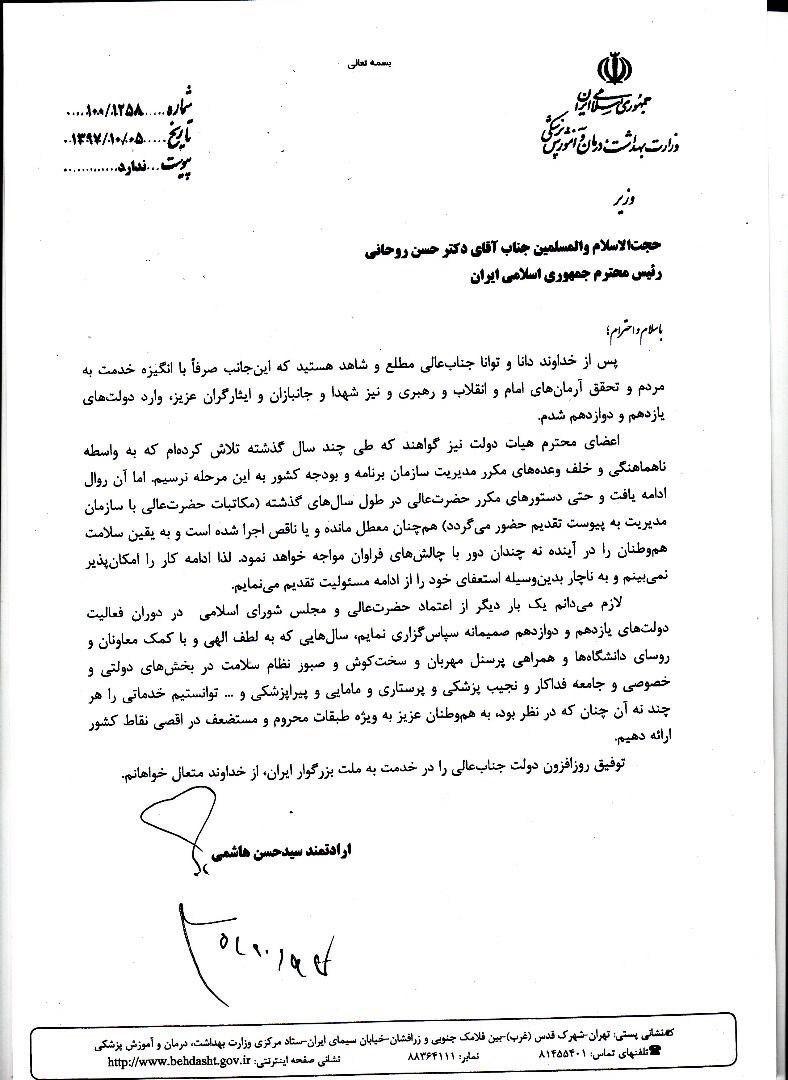 بسمه تعالی
جمهوری اسلامی ایران
وزارت بهداشت، درمان و آموزش پزشکی
وزیر
شماره.....۱۰۰/۱۲۵۸....
تاریخ.....۱۳۹۷/۱۰/۰۵.
پیوست...ندارد.............
حجت‌الاسلام والمسلمین جناب آقای دکتر حسن روحانی
رئیس محترم جمهوری اسلامی ایران
باسلام و احترام؛
پس از خداوند دانا و توانا جناب‌عالی مطلع و شاهد هستید که این‌جانب صرفاً با انگیزه خدمت به
مردم و تحقق آرمان‌های امام و انقلاب و رهبری و نیز شهدا و جانبازان و ایثارگران عزیز، وارد دولت‌های
یازدهم و دوازدهم شدم.
اعضای محترم هیات دولت نیز گواهند که طی چند سال گذشته تلاش کرده‌ام که به واسطه
ناهماهنگی و خلف وعده‌های مکرر مدیریت سازمان برنامه و بودجه کشور به این مرحله نرسیم. اما آن روال
ادامه یافت و حتی دستورهای مکرر حضرت‌عالی در طول سال‌های گذشته (مکاتبات حضرت‌عالی با سازمان
مدیریت به پیوست تقدیم حضور می‌گردد) هم‌چنان معطل مانده و یا ناقص اجرا شده است و به یقین سلامت
هم‌وطنان را در آینده نه چندان دور با چالش‌های فراوان مواجه خواهد نمود. لذا ادامه کار را امکان‌پذیر
نمی‌بینم و به ناچار بدین‌وسیله استعفای خود را از ادامه مسئولیت تقدیم می‌نمایم.
لازم می‌دانم یک بار دیگر از اعتماد حضرت‌عالی و مجلس شورای اسلامی در دوران فعالیت
دولت‌های یازدهم و دوازدهم صمیمانه سپاس‌گزاری نمایم، سال‌هایی که به لطف الهی و با کمک معاونان و
روسای دانشگاه‌ها و همراهی پرسنل مهربان و سخت‌کوش و صبور نظام سلامت در بخش‌های دولتی و
خصوصی و جامعه فداکار و نجیب پزشکی و پرستاری و مامایی و پیراپزشکی و ... توانستیم خدماتی را هر
چند نه آن چنان که در نظر بود، به هم‌وطنان عزیز به ویژه طبقات محروم و مستضعف در اقصی نقاط کشور
ارائه دهیم.
توفیق روزافزون دولت جناب‌عالی را در خدمت به ملت بزرگوار ایران، از خداوند متعال خواهانم.
ارادتمند سیدحسن هاشمی
نشانی پستی: تهران-شهرک قدس (غرب)-بین فلامک جنوبی و زرافشان-خیابان سیمای ایران-ستاد مرکزی وزارت بهداشت، درمان و آموزش پزشکی
تلفنهای تماس: ۸۱۴۵۵۴۰۱ نمابر: ۸۸۳۶۴۱۱۱ نشانی صفحه اینترنتی: http://www.behdasht.gov.ir